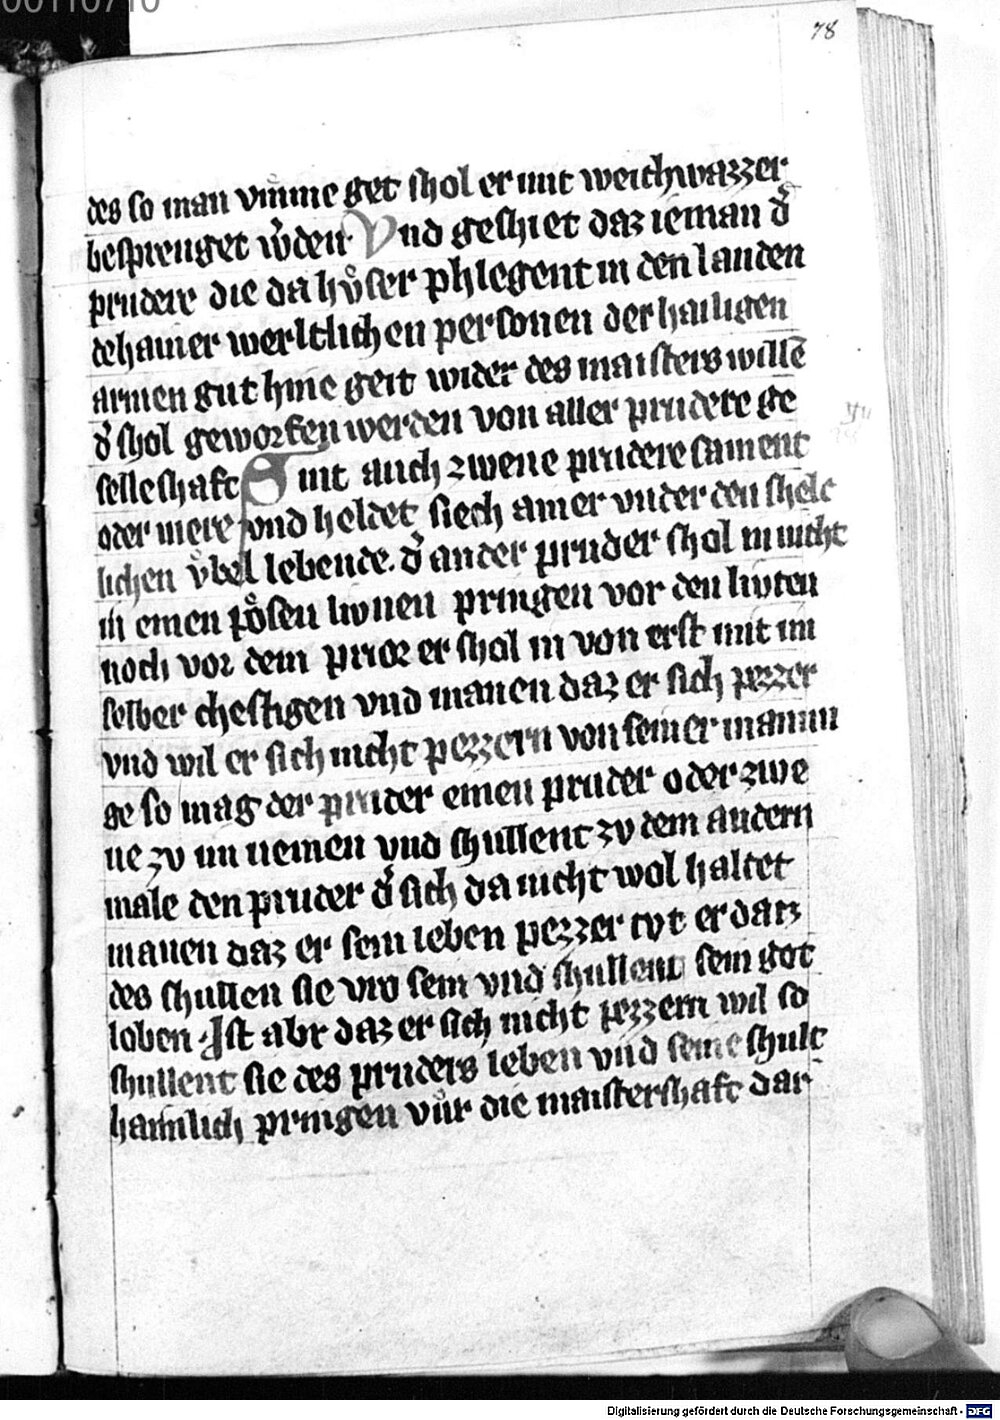 00110710
78
des so man vmme get shol er mit weichwazzer
besprenget w̓den. Vnd geshiet daz ieman d̓
prudere die da hůser phlegent in den landen
dehainer werltlichen personen der hailigen
armen gut hine geit wider des maisters willē
d̓ shol geworfen werden von aller prudere ge
selleshaft Sint auch zwene prudere sament
oder mere vnd heldet siech ainer vnder den shele
lichen ůbel lebende. d̓ ander pruder shol in nicht
in einen pösen livnen pringen vor den livten
noch vor dem prior er shol in von erst mit im
selber chestigen vnd manen daz er sich pezzer
vnd wil er sich nicht pezzern von seiner mannu
ge so mag der pruder einen pruder oder zwe
ne zv im nemen vnd shullent zv dem andern
male den pruder d̓ sich da nicht wol haltet
manen daz er sein leben pezzer tvt er daz
des shullen sie vro sein vnd shullent sein got
loben. Ist abr daz er sich nicht pezzern wil so
shullent sie des pruders leben vnd seine shult
haimlich pringen vůr die maistershaft dar
Digitalisierung gefördert durch die Deutsche Forschungsgemeinschaft - DFG